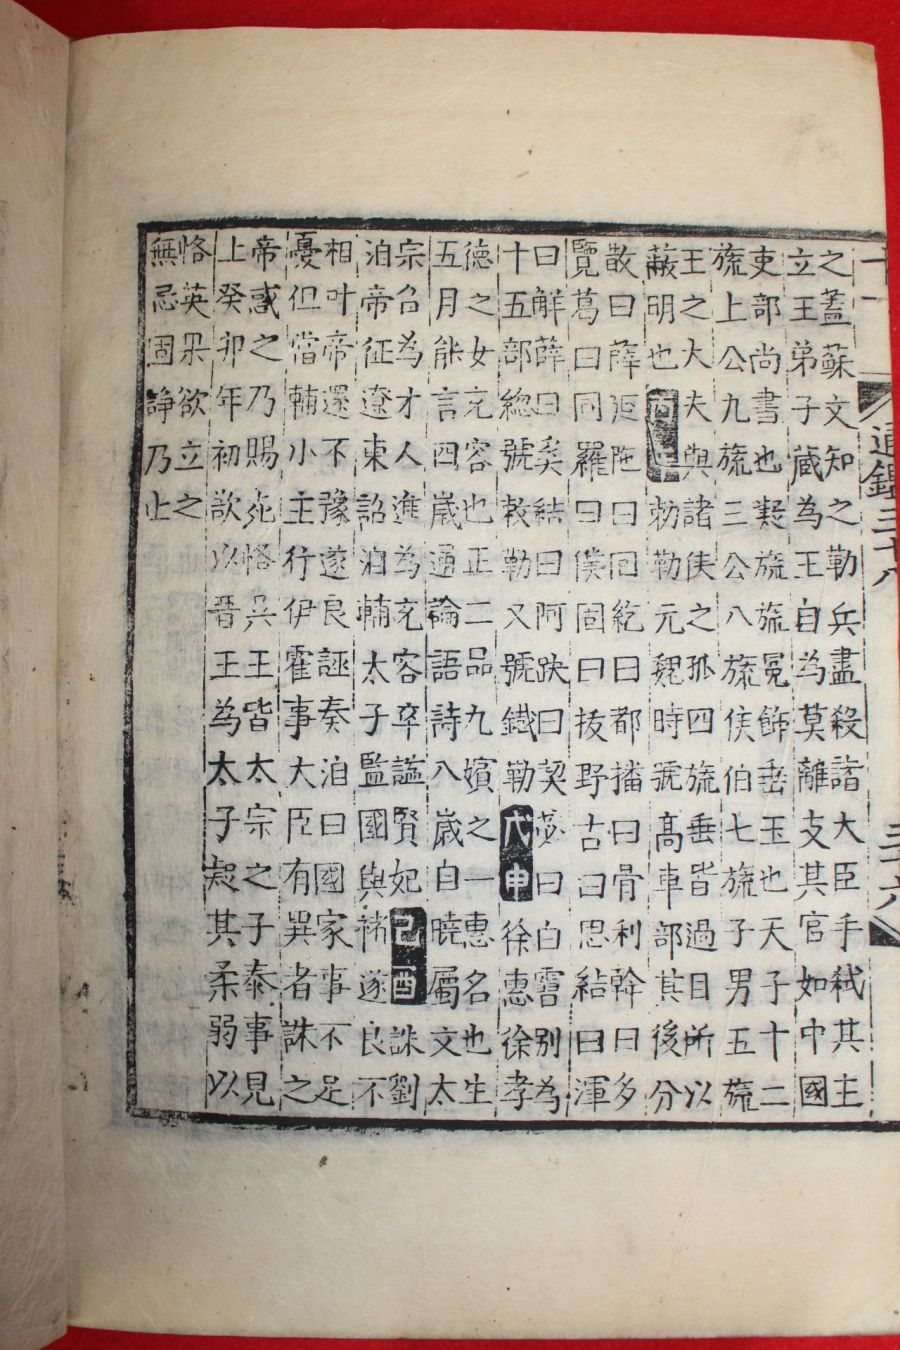 通鑑三十八
之蓋蘇文知之勒兵盡殺諸大臣手弑其主
立王弟子藏為王自為莫離支其官如中國
吏部尚書也冕旒旒冕飾垂玉也天子十二
旒上公九旒三公八旒侯伯七旒子男五旒
王之大夫與諸侯之孤四旒垂皆過目所以
蔽明也勅勒元魏時號高車部其後分
散曰薛延陁曰回紇曰都播曰骨利幹曰多
覽葛曰同羅曰僕固曰拔野古曰思結曰渾
曰斛薛曰奚結曰阿跌曰契苾曰白霫別為
十五部總號敕勒又號鐵勒戊申徐惠徐孝
德之女充容也正二品九嬪之一惠名也生
五月能言四歲通論語詩八歲自曉屬文太
宗召為才人進為充容卒謚賢妃己酉誅劉
洎帝征遼東詔洎輔太子監國與褚遂良不
相叶帝還不豫遂良誣奏洎曰國家事不足
憂但當輔小主行伊霍事大臣有異者誅之
帝惑之乃賜死恪吳王皆太宗之子泰事見
上癸卯年初欲以晋王為太子疑其柔弱以
恪英果欲立之
無忌固諍乃止